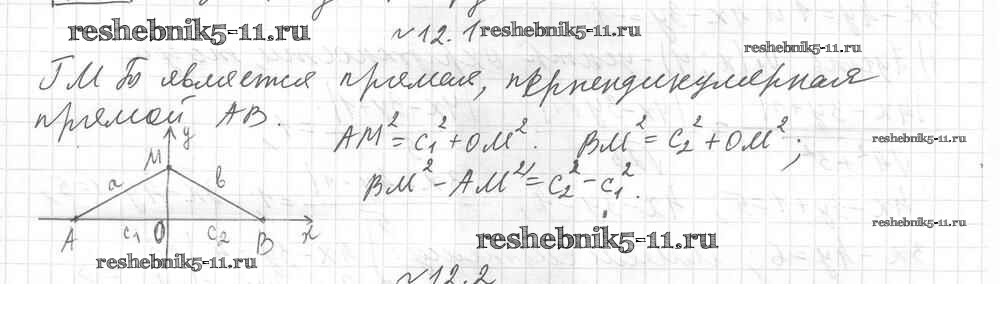 reshebnik5-11.ru
№12.1
reshebnik5-11.ru
reshebnik5-11.ru
ГМТ является прямая, перпендикулярная
прямой AB.
AM² = c₁² + OM². BM² = c₂² + OM²;
reshebnik5-11.ru
BM² - AM² = c₂² - c₁².
y
M
a b
A c₁ O c₂ B x
reshebnik5-11.ru
reshebnik5-11.ru
reshebnik5-11.ru
№12.2